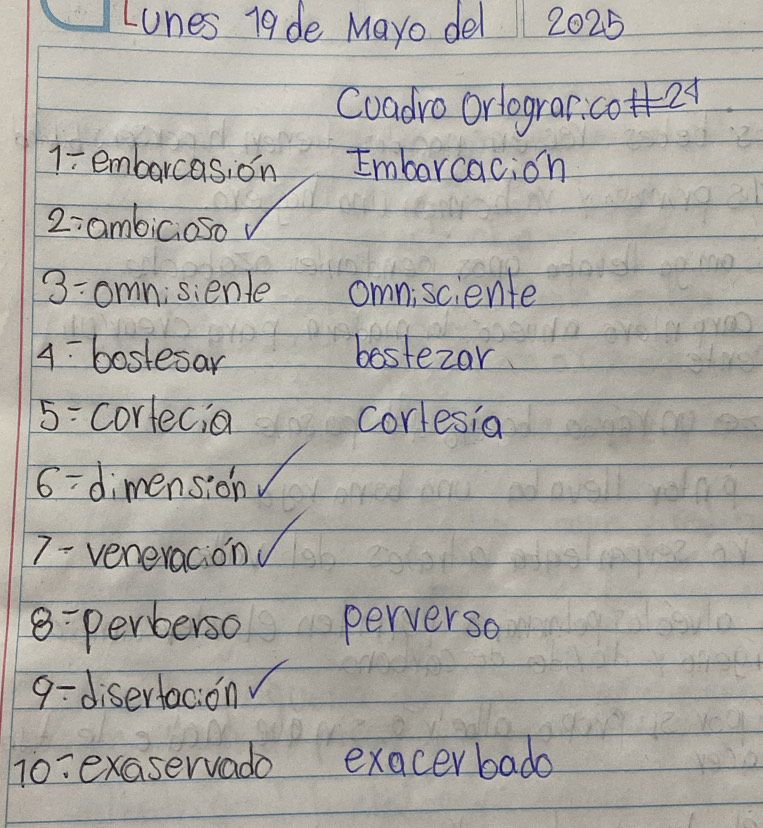 Lunes 19 de Mayo del 2025
Cuadro Ortografico #21
1- embarcasión Imbarcación
2- ambicioso ✓
3- omnisiente omnisciente
4- bostesar bostezar
5- cortecia cortesia
6- dimensión ✓
7- veneración ✓
8- perberso perverso
9- disertación ✓
10- exaservado exacerbado